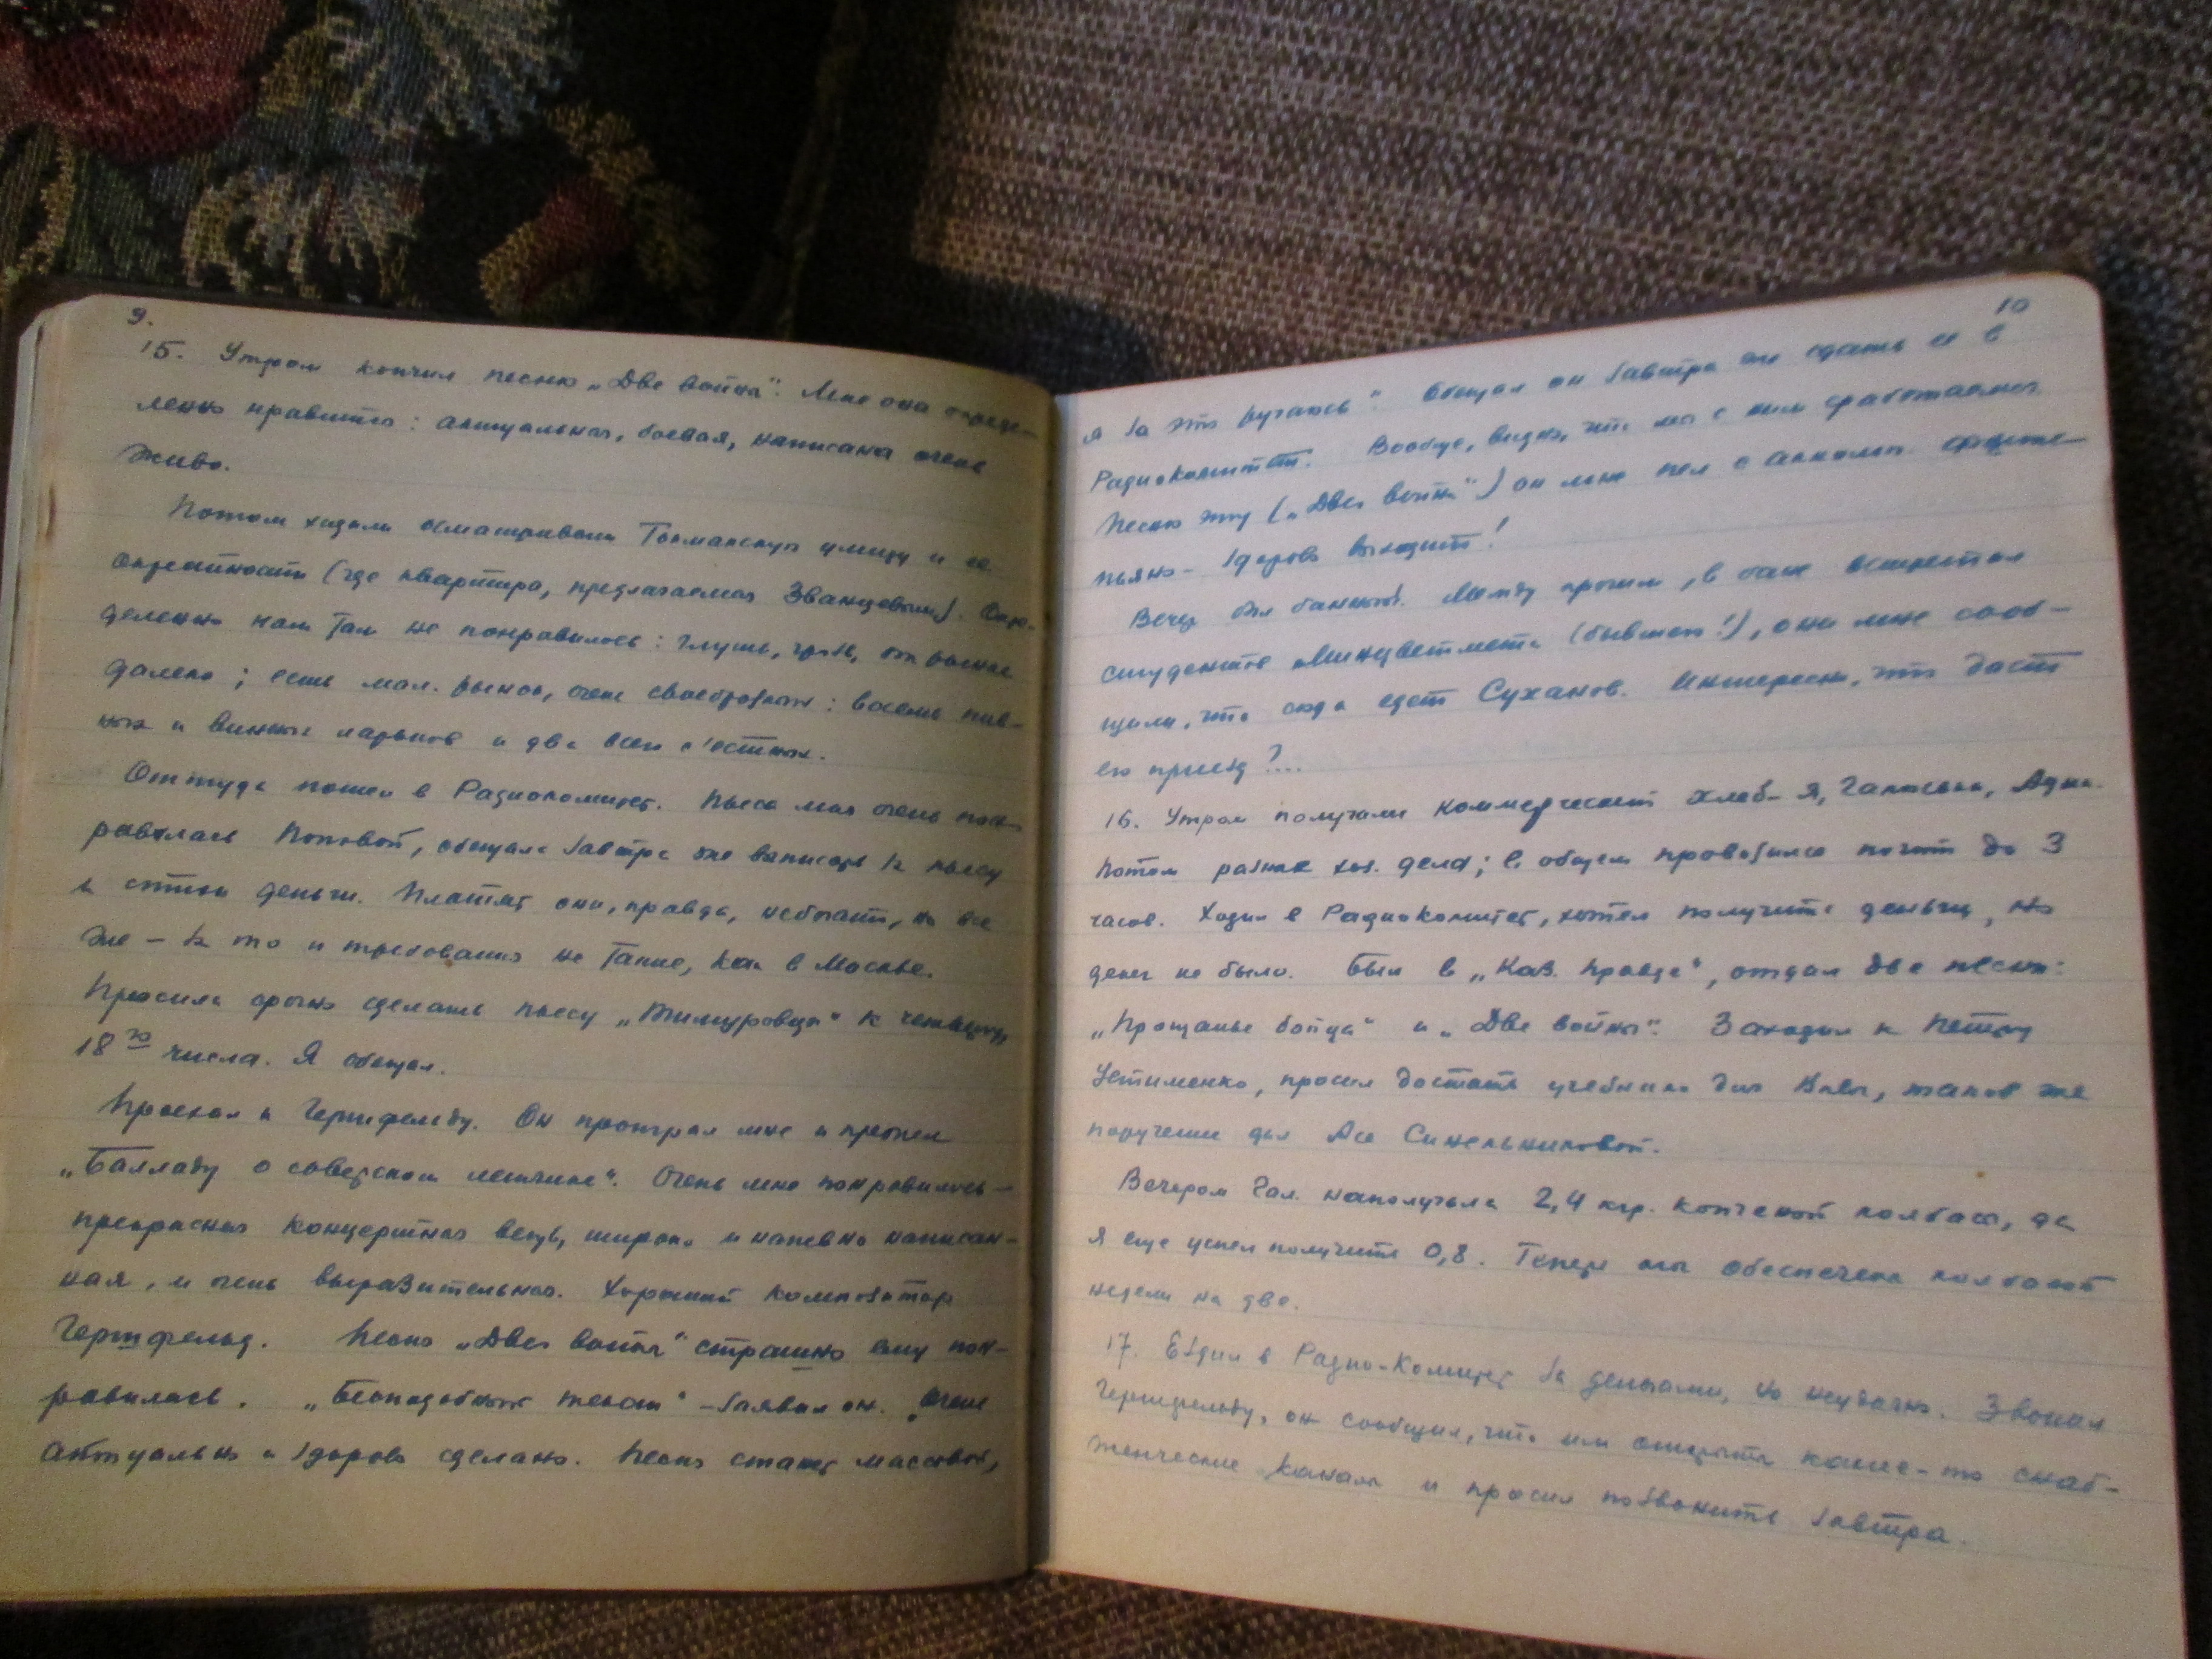 9.
15. Утром кончил песню „Две войны“. Мне она опреде-
ленно нравится: актуальная, боевая, написана очень
живо.
Потом ходили осматривать Токмакскую улицу и ее
окрестности (где квартира, предлагаемая Званцевым). Опре-
деленно нам там не понравилось: глушь, грязь, от рынка
далеко; есть мал. рынок, очень своеобразный: восемь пив-
ных и винных ларьков и два всего с'естных.
Оттуда пошел в Радиокомитет. Пьеса моя очень пон-
равилась Поповой, обещала завтра же выписать за пьесу
и стихи деньги. Платят они, правда, небогато, но все
же – за то и требования не такие, как в Москве.
Просила срочно сделать пьесу „Тимуровцы“ к четвергу,
18го числа. Я обещал.
Проехал к Герчфельду. Он проиграл мне и пропел
„Балладу о советском летчике“. Очень мне понравилось –
прекрасная концертная вещь, широко и напевно написан-
ная, и очень выразительная. Хороший композитор
Герчфельд. Песня „Две войны“ страшно ему пон-
равилась. „Бесподобный текст“ – заявил он. „Очень
актуально и здорово сделано. Песня станет массовой,
10
я за это ручаюсь“. Обещал он завтра же сдать ее в
Радиокомитет. Вообще, видно, что мы с ним сработаемся.
Песню эту („Две войны“) он мне пел с аккомп. фортe-
пьяно – здорово выходит!
Вечер был банный. Между прочим, в бане встретил
студентов Минцветмета (бывших!), они мне сооб-
щили, что сюда едет Суханов. Интересно, что даст
его приезд?...
16. Утром получали коммерческий хлеб – я, Галюська,
Потом разные хоз. дела; в общем провозился почти до 3
часов. Ходил в Радиокомитет, хотел получить деньги, но
денег не было. Был в „Каз. Правде“, отдал две песни:
„Прощанье бойца“ и „Две войны“. Заходил к Петру
Устименко, просил достать учебники для Вивы, таков же
поручение дал Асе Синельниковой.
Вечером Гал. наполучала 2,4 кгр. копченой колбасы, да
я еще успел получить 0,8. Теперь мы обеспечены колбасой
недели на две.
17. Ездил в Радио-Комитет за деньгами, но неудачно. Звонил
Герчфельду, он сообщил, что им открыты какие-то снаб-
женческие каналы и просил позвонить завтра.